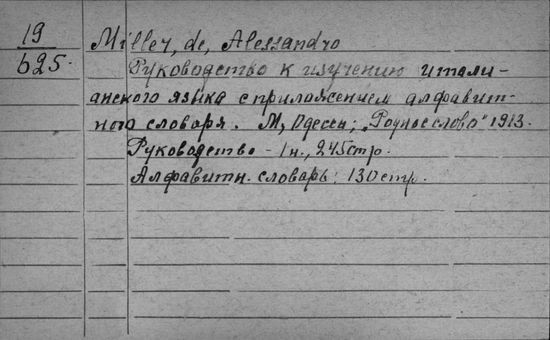 19
625.
Miller, de, Alessandro
Руководство к изучению итали-
анского языка с приложением алфавит-
ного словаря. М, Одесса; „Родное слово" 1913.
Руководство - 1 н., 245 стр.
Алфавитн. словарь: 130 стр.